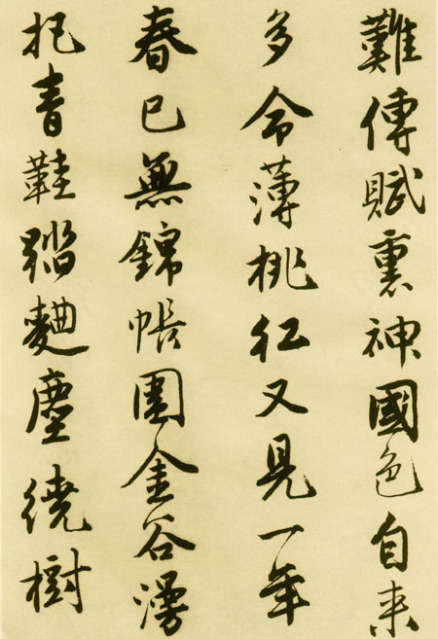 難傳賦裏神國色自来
多命薄桃紅又見一年
春已無錦帳圍金谷漫
把青鞋踏麴塵繞樹